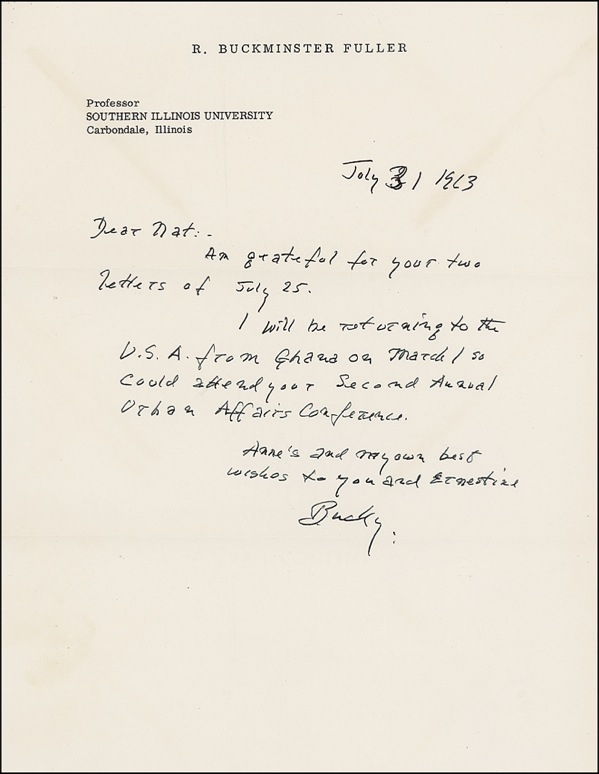 R. BUCKMINSTER FULLER
Professor
SOUTHERN ILLINOIS UNIVERSITY
Carbondale, Illinois
July 31 1963
Dear Nat:-
Am grateful for your two
letters of July 25.
I will be returning to the
U.S.A. from Ghana on March 1 so
could attend your Second Annual
Urban Affairs Conference.
Anne's and my own best
wishes to you and Ernestine
Bucky.